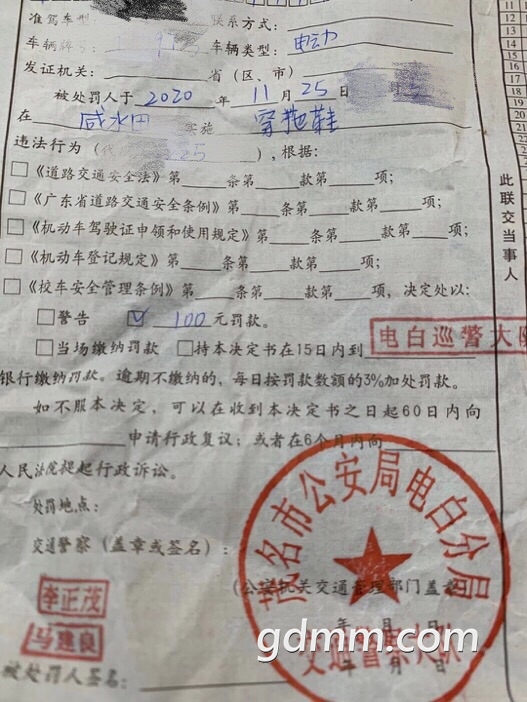 准驾车型 联系方式:
车辆牌号 车辆类型: 电动
发证机关: 省(区、市)
被处罚人于 2020 年 11 月 25 日
在 咸水田 实施 穿拖鞋
违法行为(代 ),根据:
□《道路交通安全法》第____条第____款第____项;
□《广东省道路交通安全条例》第____条第____款第____项;
□《机动车驾驶证申领和使用规定》第____条____款第____项;
□《机动车登记规定》第____条____款第____项;
□《校车安全管理条例》第____条____款第____项,决定处以:
□警告 ☑ 100 元罚款。
□当场缴纳罚款 □持本决定书在15日内到
电白巡警大
银行缴纳罚款。逾期不缴纳的,每日按罚款数额的3%加处罚款。
如不服本决定,可以在收到本决定书之日起60日内向
____申请行政复议;或者在6个月内向____
人民法院提起行政诉讼。
处罚地点:
交通警察(盖章或签名):
(公安机关交通管理部门盖章)
李正茂
马建良
年 月 日
被处罚人签名:
年 月 日
茂名市公安局电白分局
交通警察大队
此联交当事人
11
12
13
14
15
16
17
18
19
20
21
22
gdmm.com